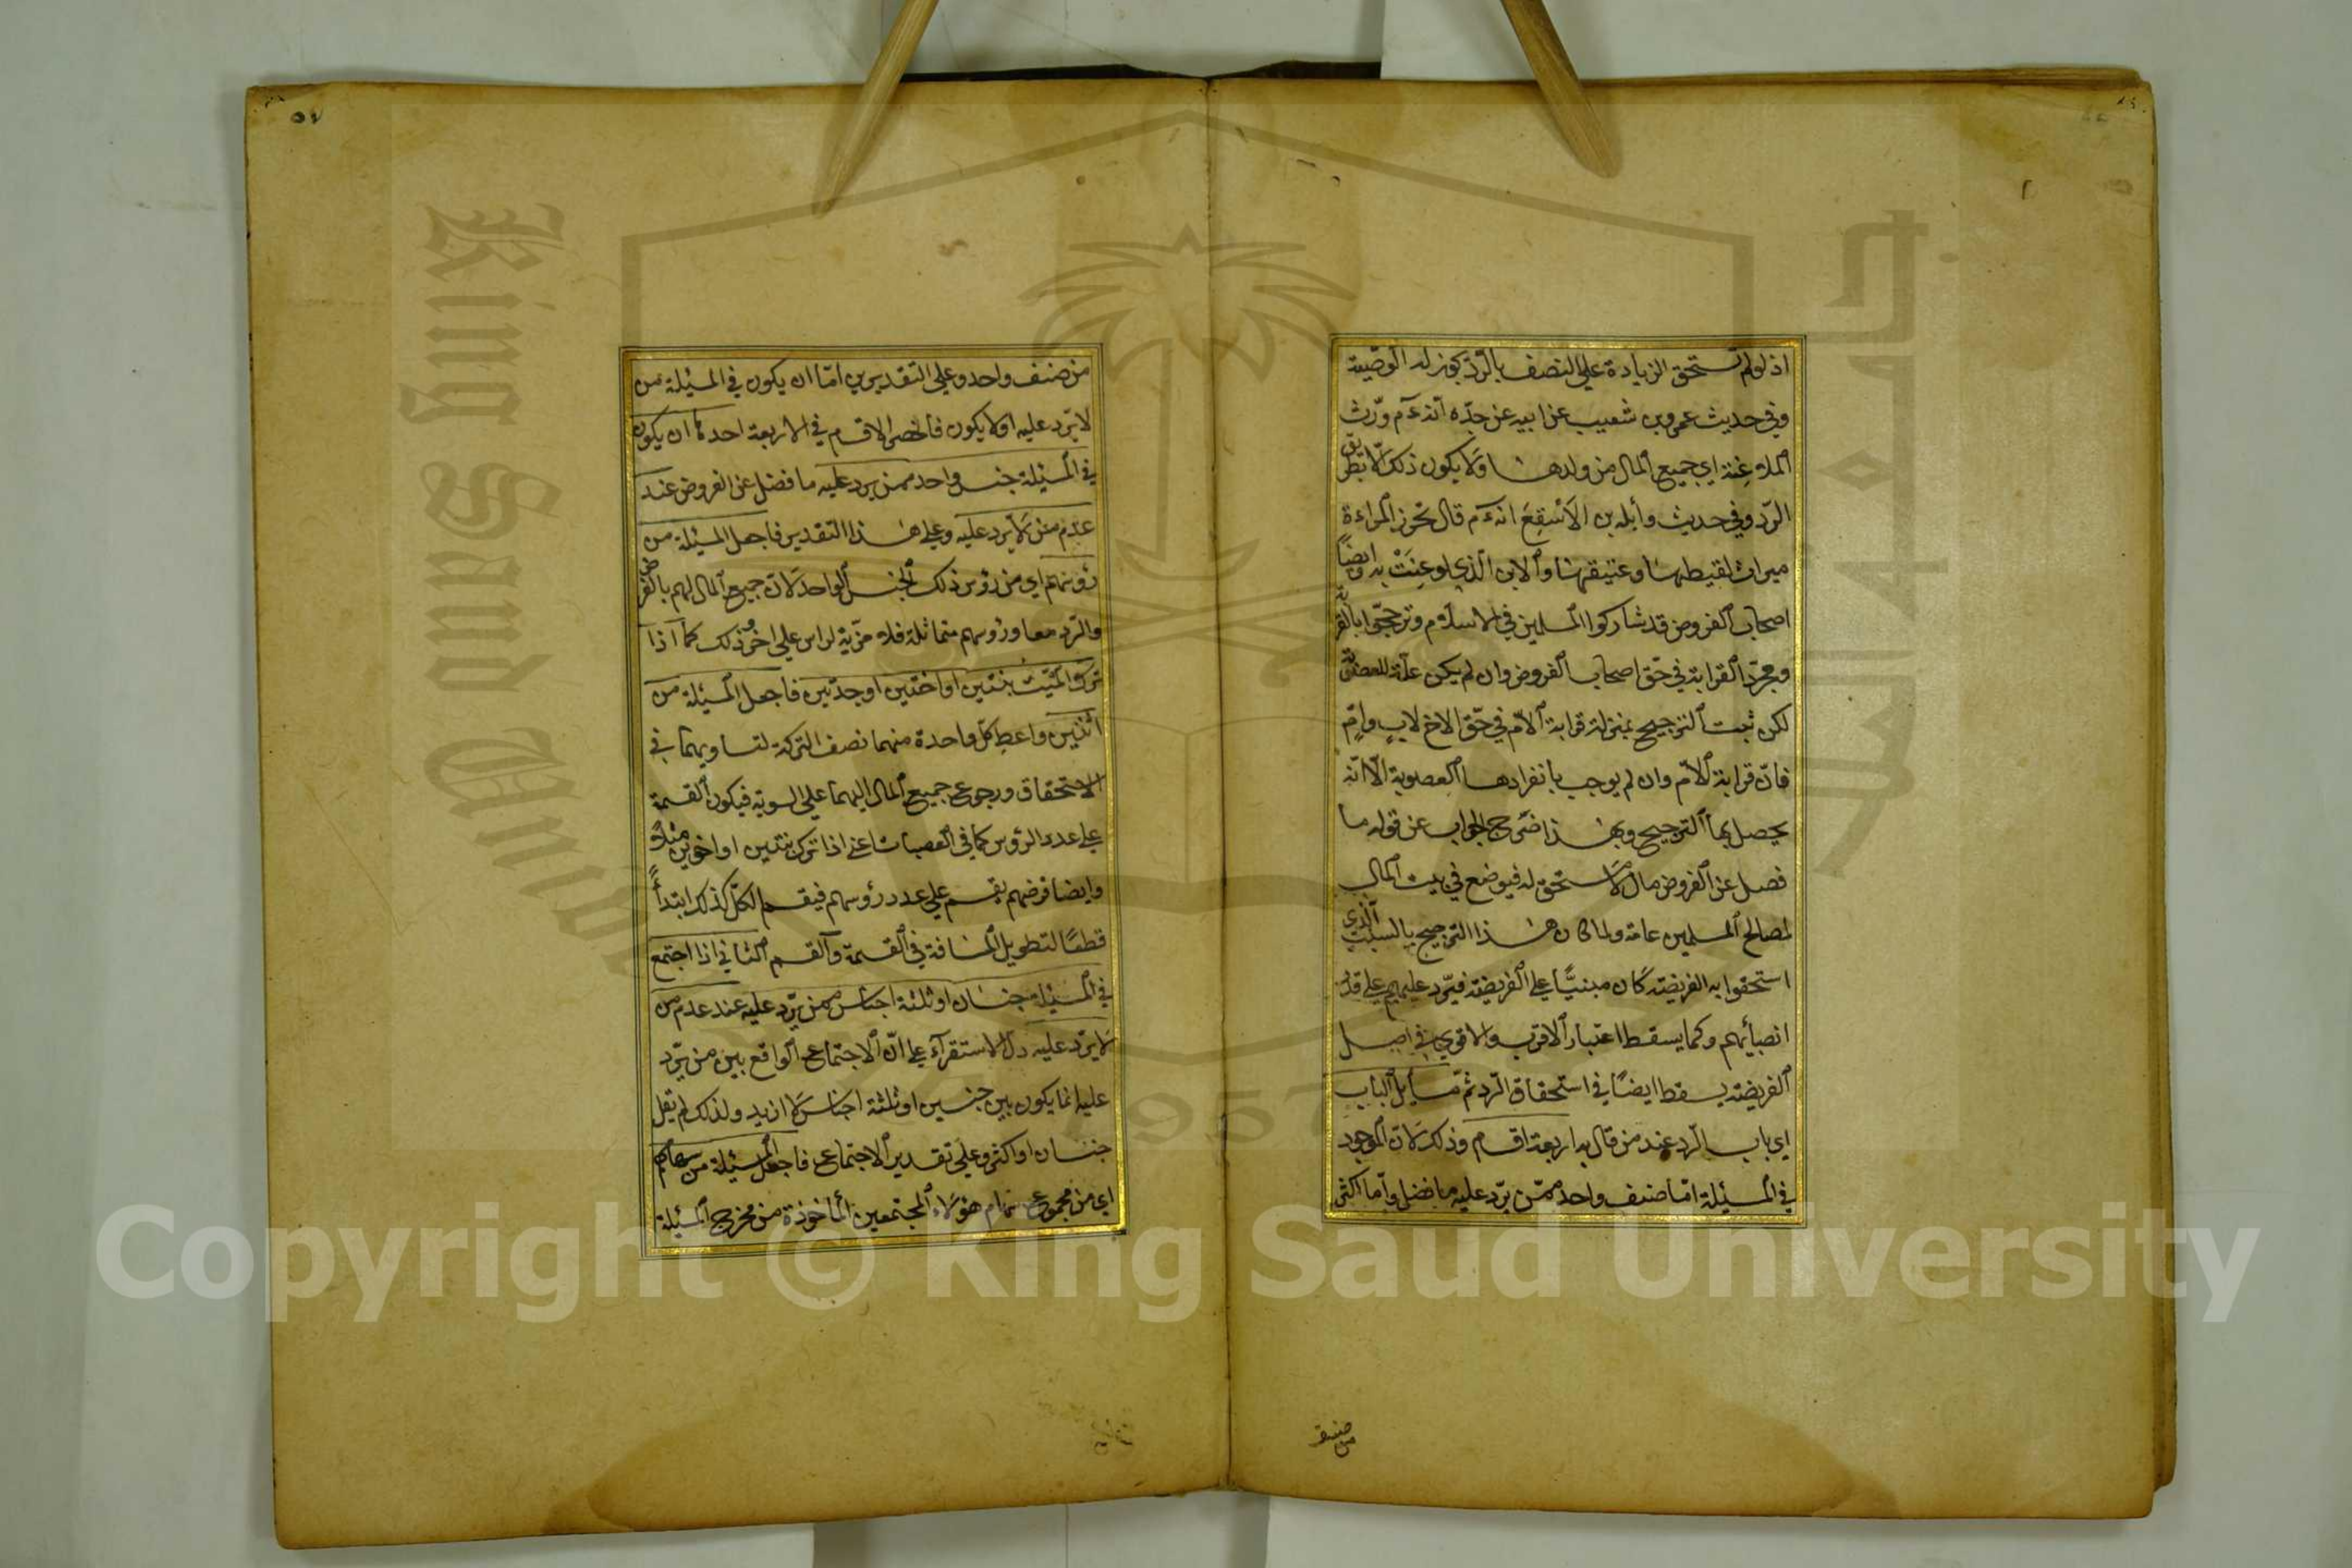 اذ لو لم تستحق الزيادة علي النصف بالرّد يجوز له الوصيّة
وفي حديث عمرو بن شعيب عن ابيه عن جدّه انه عم ورّث
الملاعنة اي جميع المال من ولدها ولا يكون ذلك الا بطريق
الرّد وفي حديث وأبلة بن الاسقع انه عم قال تحرز المراءة
ميراث لقيطها وعتيقها والابن الذي لوعنت به وايضاً
اصحاب الفروض قد شاركوا المسلمين في الاسلام وترجحوا بالقرابة
ومجرّد القرابة في حق اصحاب الفروض وان لم يكن علّة للعصوبة
لكن ثبت الترجيح بمنزلة قرابة الامّ في حقّ الاخ لابٍ وامٍّ
فانّ قرابة الامّ وان لم يوجب بانفرادها العصوبة الّا انّه
يحصل بها الترجيح وبهذا خرج الجواب عن قوله ما
فضل عن الفروض مال لا مستحق له فيوضع في بيت المال
لمصالح المسلمين عامة ولما كان هذا الترجيح بالسبب الّذي
استحقوا به الفريضة كان مبنيًّا علي الفريضة فيردّ عليهم علي قدر
انصبائهم وكما يسقط اعتبار الاقرب والاقوي في اصل
الفريضة يسقط ايضًا في استحقاق الرّد ثمّ مسايل الباب
اي باب الرّد عند من قال به اربعة اقسام وذلك لانّ الموجود
في المسئلة امّا صنف واحد ممّن يرّد عليه ما فضل وامّا اكثر
من صنف
٥٧
من صنف واحد وعلي التقديرين امّا ان يكون في المسئلة من
لا يرّد عليه او لا يكون فانحصر الاقسام في الاربعة احدها ان يكون
في المسئلة جنس واحد ممن يرد عليه ما فضل عن الفروض عند
عدم من لا يرّد عليه وعلي هذا التقدير فاجعل المسئلة من
رؤسهم اي من رؤس ذلك الجنس الواحد لانّ جميع المال لهم بالفرض
والرّد معا ورؤسهم متماثلة فلا مزّية لراس علي اخر وذلك كما اذا
ترك الميّت بنتين او اختين او جدّتين فاجعل المسئلة من
اثنين واعط كلّ واحدة منهما نصف التركة لتساويهما في
الاستحقاق ورجوع جميع المال اليهما علي السوية فيكون القسمة
علي عدد الرؤس كما في العصبات اعني اذا ترك بنتين او اخوين مثلاً
وايضا فرضهم يقسم علي عدد رؤسهم فيقسم الكلّ كذلك ابتداءً
قطعًا لتطويل المسافة في القسمة والقسم الثاني اذا اجتمع
في المسئلة جنسان او ثلثة اجناس ممن يرّد عليه عند عدم من
لا يرّد عليه دلّ الاستقرآء علي انّ الاجتماع الواقع بين من يرّد
عليه انما يكون بين جنسين او ثلثة اجناس لا ازيد ولذلك لم يقل
جنسان او اكثر وعلي تقدير الاجتماع فاجعل المسئلة من سهامهم
اي من مجموع سهام هؤلاء المجتمعين المأخوذة من مخرج المسئلة
King Saud Univ
1957
Copyright © King Saud University